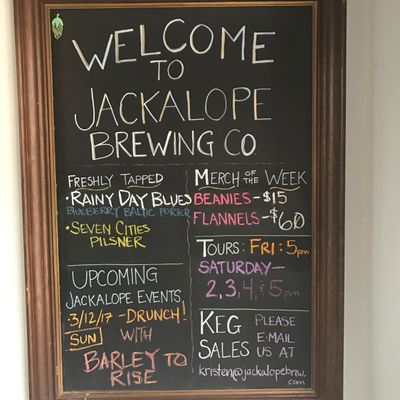 WELCOME
TO
JACKALOPE
BREWING CO
FRESHLY TAPPED
• RAINY DAY BLUES
BLUEBERRY BALTIC PORTER
• SEVEN CITIES
PILSNER
UPCOMING
JACKALOPE EVENTS
• 3/12/17 - DRUNCH!
SUN WITH
BARLEY TO
RISE
MERCH OF THE WEEK
BEANIES - $15
FLANNELS - $60
TOURS: FRI: 5pm
SATURDAY -
2, 3, 4, & 5pm
KEG SALES
PLEASE
E-MAIL
US AT
kristen@jackalopebrew.
com